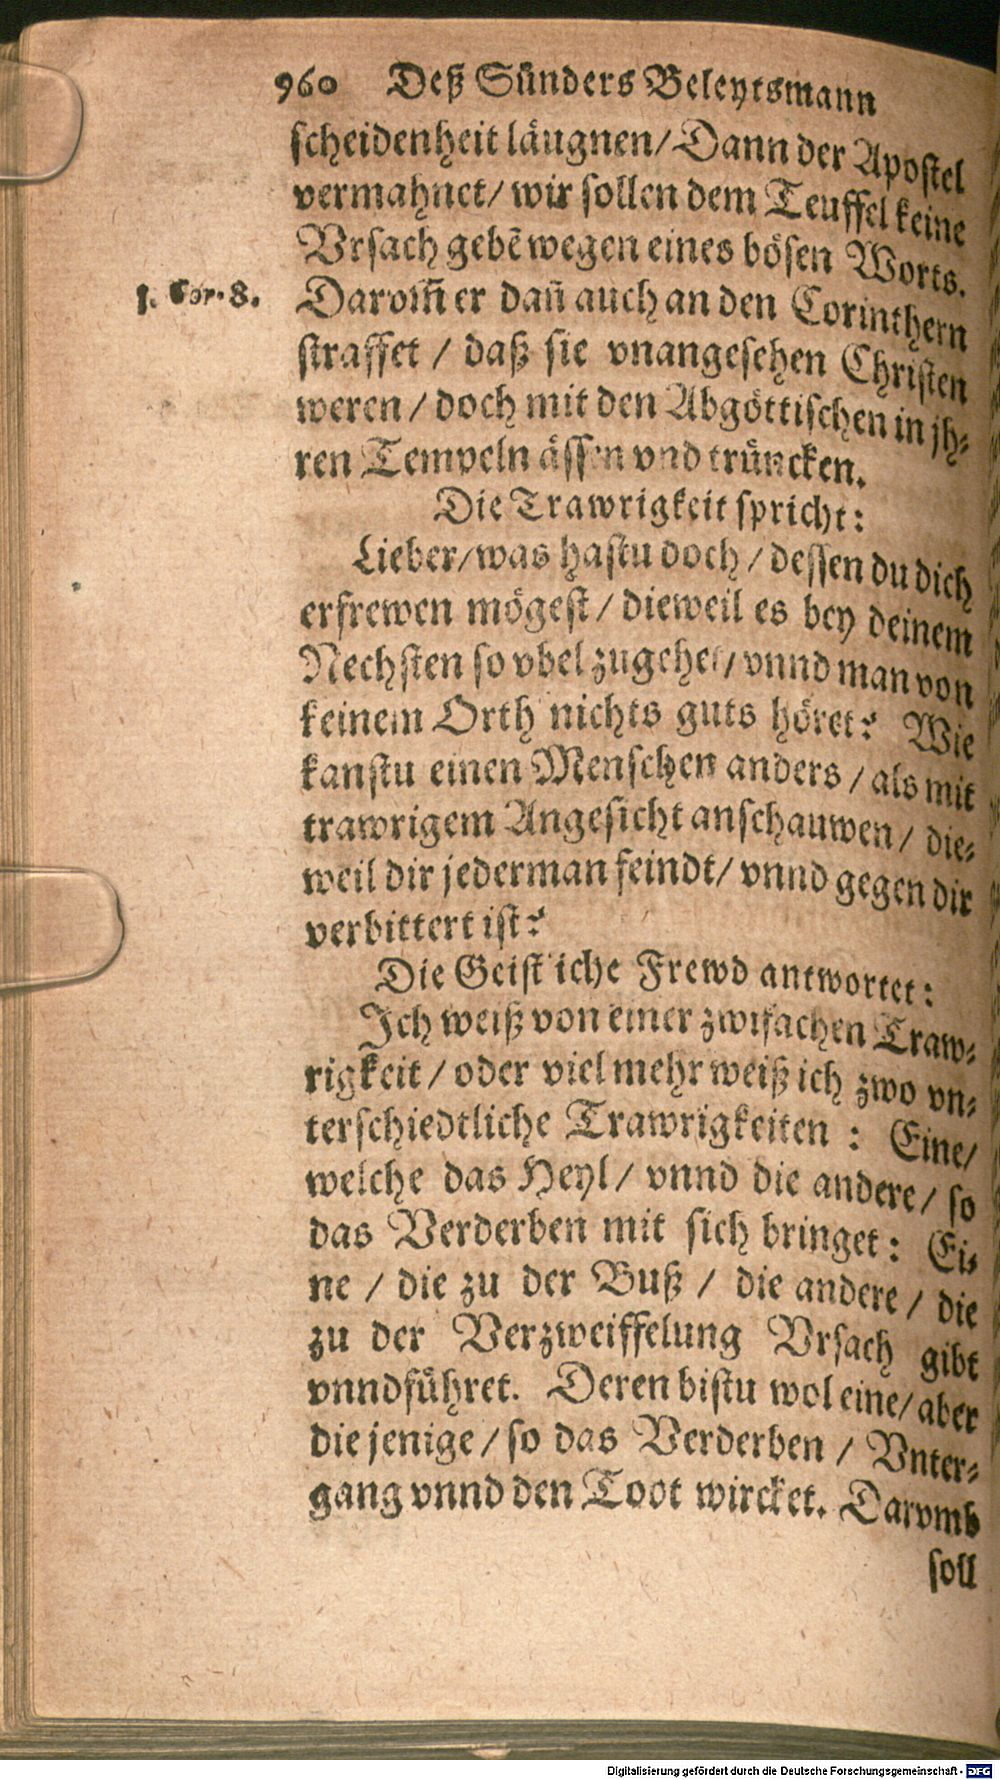 960 Deß Sünders Beleytsmann
scheidenheit läugnen/ Dann der Apostel
vermahnet/ wir sollen dem Teuffel keine
Vrsach gebē wegen eines bösen Worts.
1. Cor. 8.
Darom̄ er dañ auch an den Corinthern
straffet / daß sie vnangesehen Christen
weren / doch mit den Abgöttischen in jh-
ren Tempeln ässen vnd trüncken.
Die Trawrigkeit spricht:
Lieber/ was hastu doch / dessen du dich
erfrewen mögest / dieweil es bey deinem
Nechsten so vbel zugehet/ vnnd man von
keinem Orth nichts guts höret? Wie
kanstu einen Menschen anders / als mit
trawrigem Angesicht anschauwen / die-
weil dir jederman feindt/ vnnd gegen dir
verbittert ist?
Die Geistliche Frewd antwortet:
Ich weiß von einer zwifachen Traw-
rigkeit / oder viel mehr weiß ich zwo vn-
terschiedtliche Trawrigkeiten : Eine/
welche das Heyl / vnnd die andere / so
das Verderben mit sich bringet: Ei-
ne / die zu der Buß / die andere / die
zu der Verzweiffelung Vrsach gibt
vnnd führet. Deren bistu wol eine/ aber
die jenige / so das Verderben / Vnter-
gang vnnd den Todt wircket. Darvmb
soll
Digitalisierung gefördert durch die Deutsche Forschungsgemeinschaft - DFG